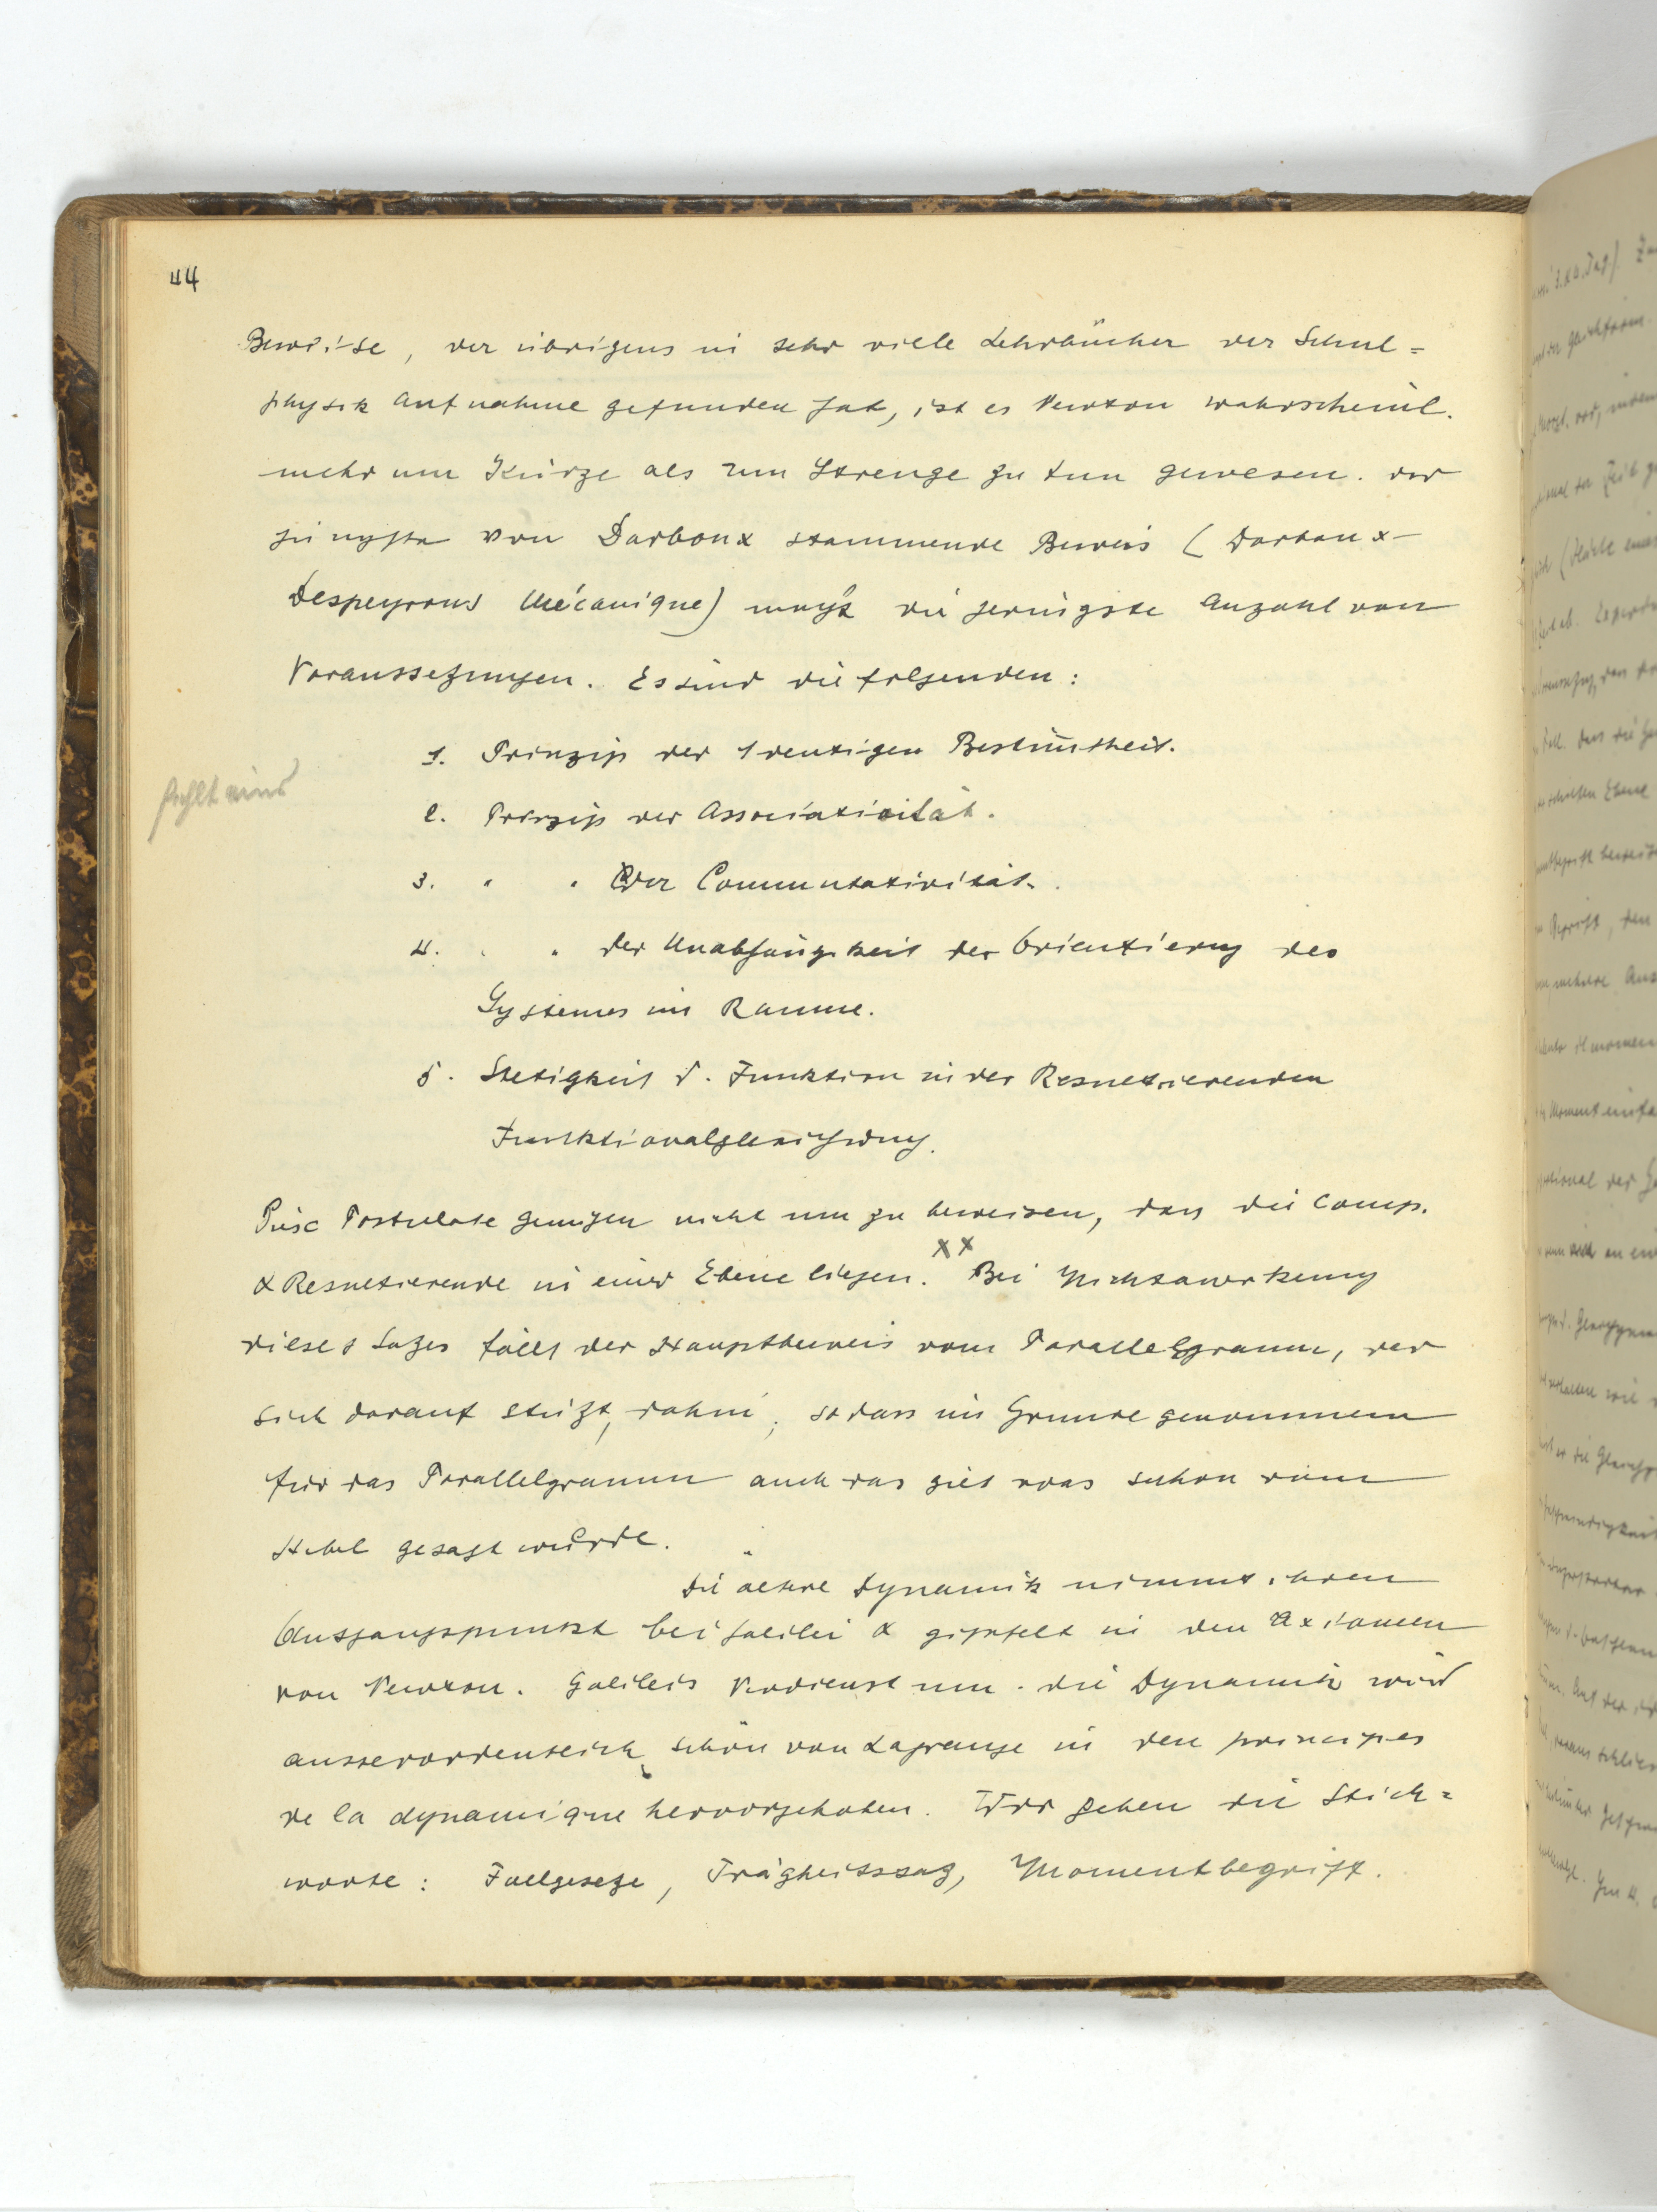 44
Beweise, der übrigens in sehr viele Lehrbücher der Schul=
physik Aufnahme gefunden hat, ist es Newton wahrscheinl.
mehr um Kürze als um Strenge zu tun gewesen. Der
jüngste von Darboux stammende Beweis (Darboux-
Despeyrous Mécanique) macht die geringste Anzahl von
Voraussetzungen. Es sind die folgenden:
1. Prinzip der 1deutigen Bestim̄theit.
fehlt eins
2. Prinzip der Associativität.
3. " " der Commutativität.
4. " " der Unabhängigkeit der Orientierung des
Systemes im Raume.
5. Stetigkeit d. Funktion in der Resultierenden
Funktionalgleichung.
Diese Postulate genügen nicht um zu beweisen, dass die Comp.
& Resultierende in einer Ebene liegen. xx Bei Nichtanerkennung
dieses Satzes fällt der Hauptbeweis vom Parallelgramm, der
sich darauf stützt, dahin; so dass im Grunde genommen
für das Parallelgramm auch das gilt was schon vom
Hebel gesagt wurde.
Die aeltere Dynamik nimmt ihren
Ausgangspunkt bei Galilei & gipfelt in den Axiomen
von Newton. Galileis Verdienst um die Dynamik wird
ausserordentlich schön von Lagrange in den principes
de la dynamique hervorgehoben. Wir geben die Stich=
worte: Fallgesetze, Trägheitssatz, Momentbegriff.